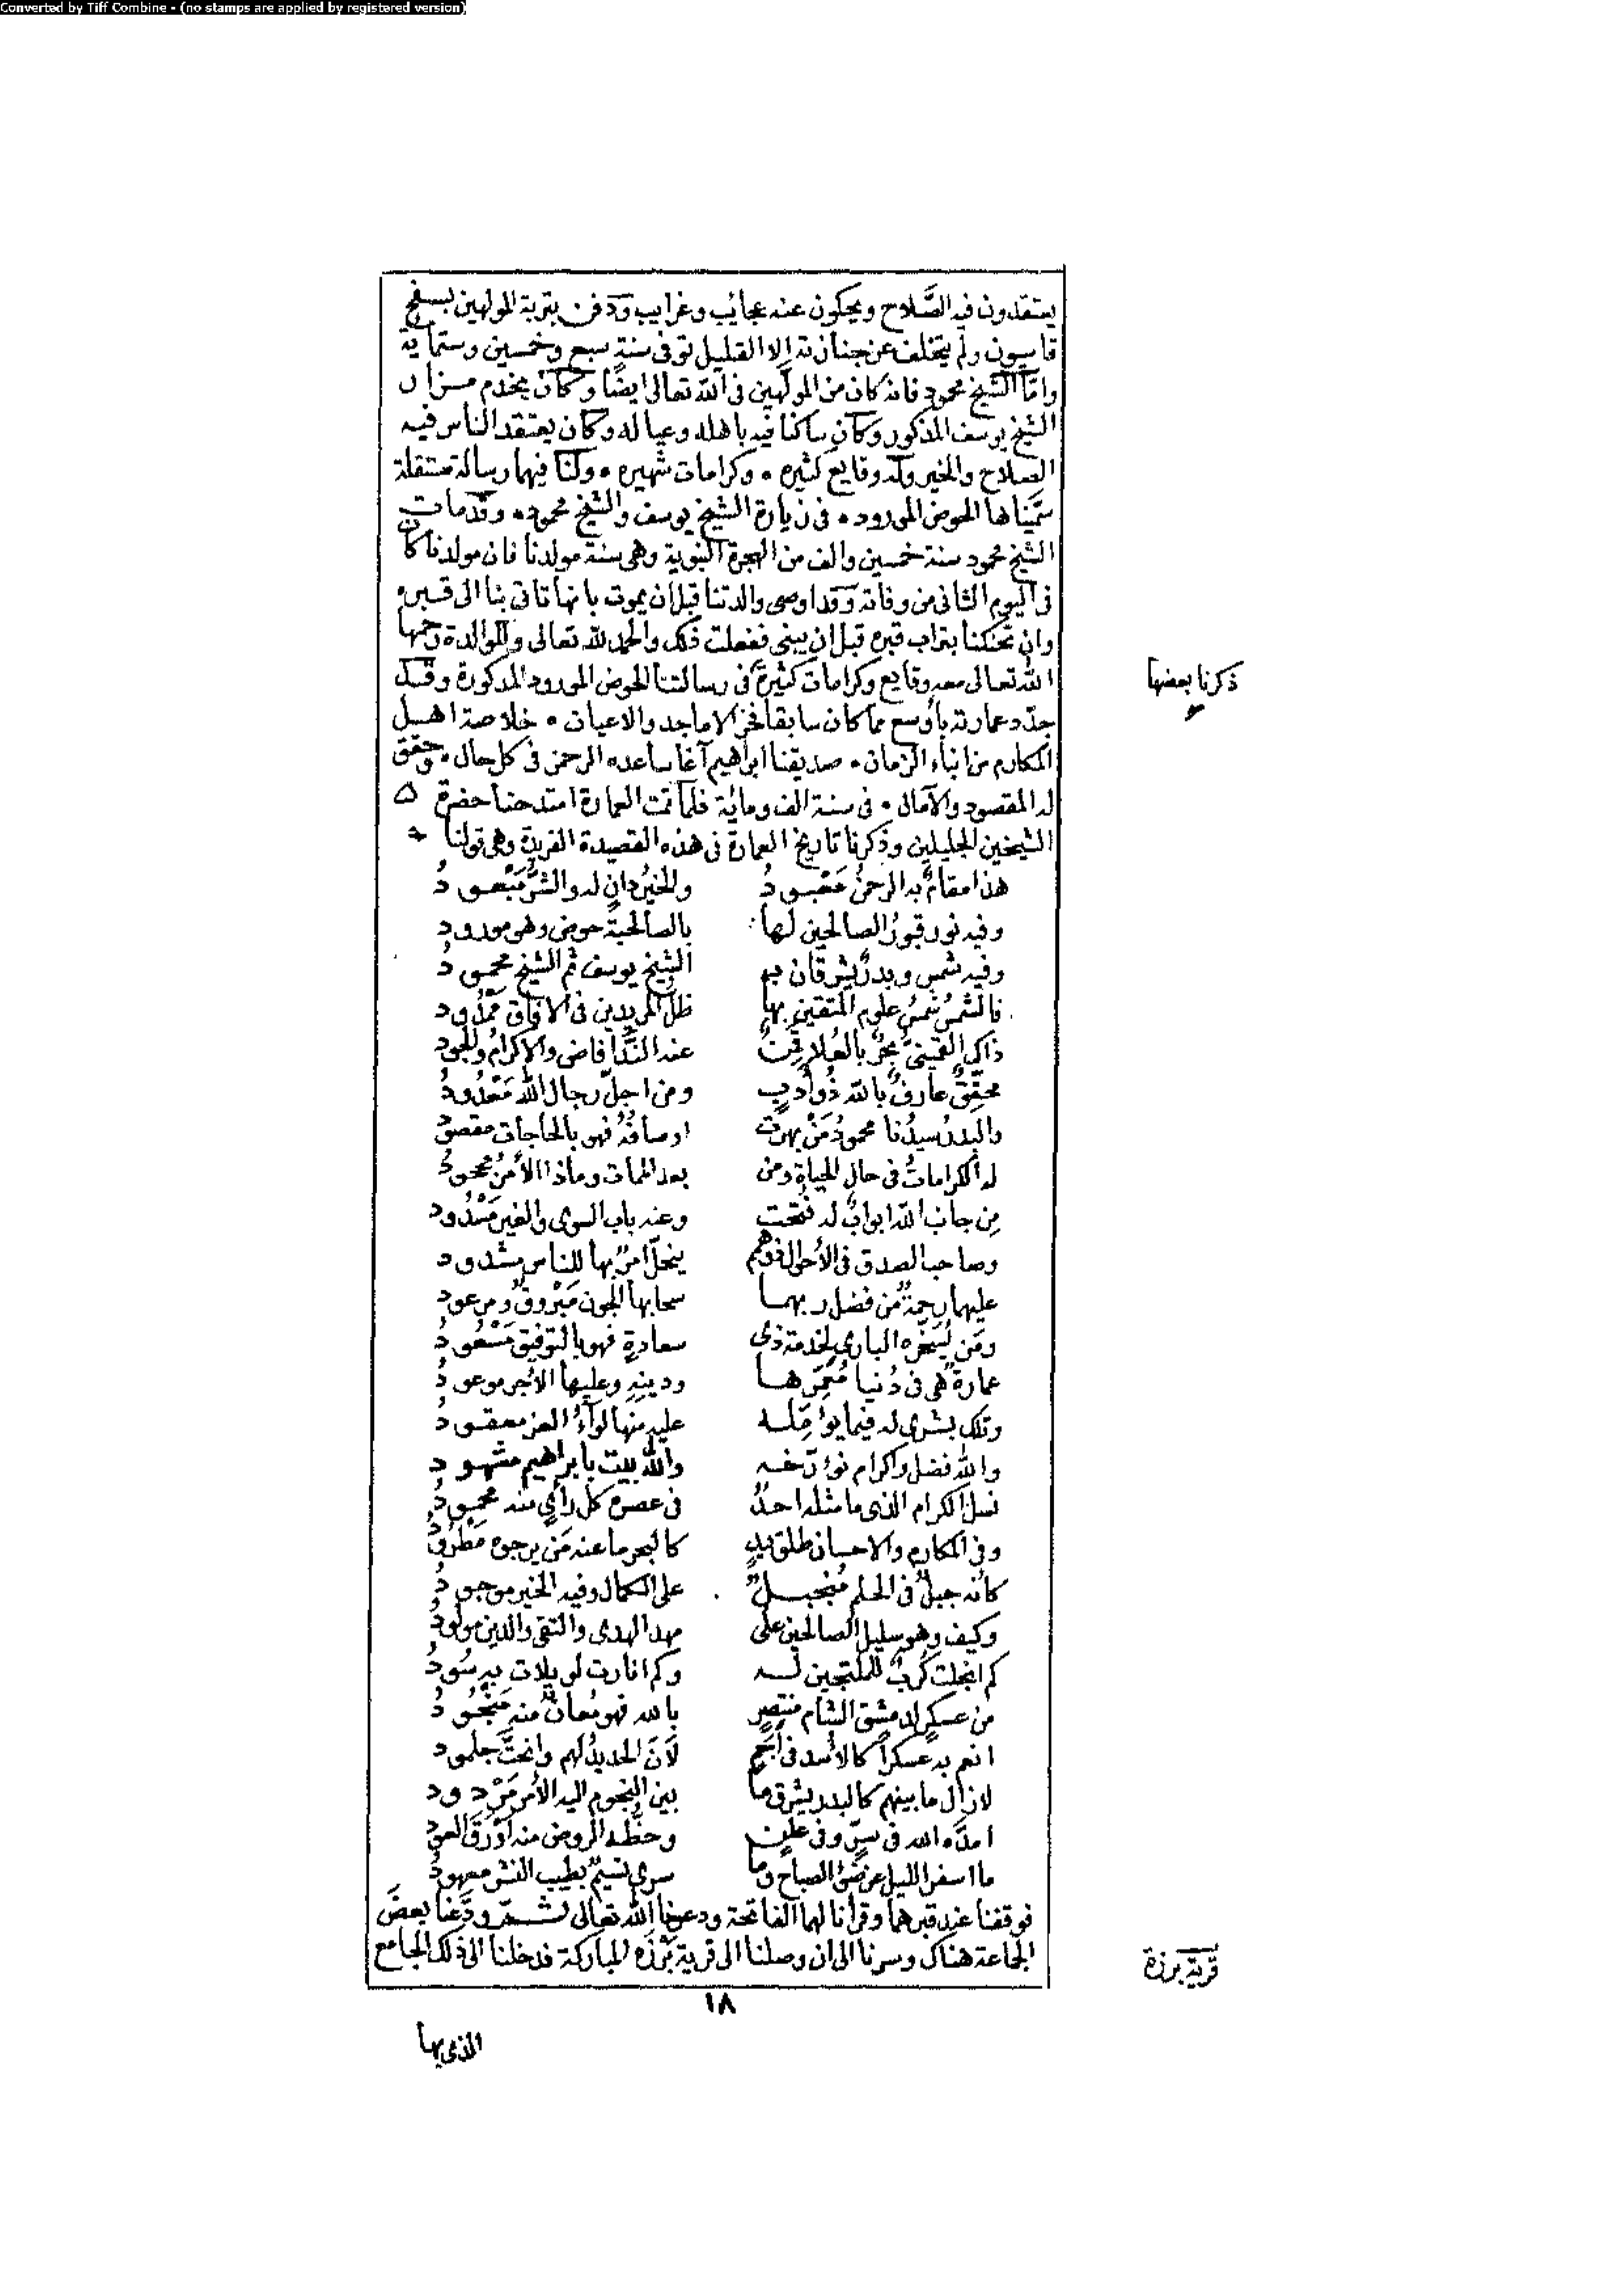 Converted by Tiff Combine - (no stamps are applied by registered version)
يعتقدون فيه الصَّلاح ويحكون عنه عجائب وغرايب ودفن بتربة المولهين بسفح
قاسيون ولم يتخلف عن جنازته إلا القليل توفى سنة سبع وخمسين وستماية
وامّا الشيخ محمود فانه كان من المولهين فى الله تعالى ايضًا وكان يخدم مزار
الشيخ يوسف المذكور وكان ساكنا فيه باهله وعياله وكان يعتقد الناس فيه
الصلاح والخير وله وقايع كثيره ٠ وكرامات شهيره ٠ ولنا فيهما رسالة مستقلة
سمّيناها الحوض المورود ٠ فى زيارة الشيخ يوسف والشيخ محمود ٠ وقد مات
الشيخ محمود سنة خمسين والف من الهجرة النبوية وهى سنة مولدنا فان مولدنا كان
فى اليوم الثانى من وفاته وقد اوصى والدتنا قبل ان يموت بانها تاتى بنا الى قبره
وان تحنكنا بتراب قبره قبل ان يبنى ففعلت ذلك والحمد لله تعالى وللوالدة رحمها
الله تعالى معه وقايع وكرامات كثيرة فى رسالتنا الحوض المورود المذكورة وقد
ذكرنا بعضها
جدّد عمارته باوسع مما كان سابقا فخر الاماجد والاعيان ٠ خلاصة اهل
المكارم من ابناء الزمان ٠ صديقنا ابراهيم آغا ساعده الرحمن فى كل حال ٠ وحقق
له المقصود والآمال ٠ فى سنة الف ومائة فلما تمت العمارة امتدحنا حضرة
الشيخين الجليلين وذكرنا تاريخ العمارة فى هذه القصيدة الفريدة وهى قولنا
هذا مقامٌ به الرحمنُ مَعْبودُ والخيرُ دانٍ له والشرُّ مَبْعودُ
وفيه نور قبورُ الصالحين لها بالصالحية حوض وهو مورود
وفيه شمس وبدرٌ يشرقان به الشيخ يوسف ثم الشيخ محمودُ
فالشمسُ شمسُ علوم المتقين بها ظلُّ المريدين فى الافاق ممْدُود
عند النَّدا فاض والاكرامُ والجود
محقّقٌ عارفٌ بالله ذُو أدبٍ ومن اجلّ رجال الله مَعْدُودُ
والبدرُ سيدُنا محمودُ مَنْ بهرت اوصافُهُ فهو بالحاجات مقصودُ
له الكراماتُ فى حال الحياة ومن بعد الممات وماذا الأمرُ مجحودُ
مِن جانب الله ابوابٌ له فتحت وعنه باب السوى والغير مَسْدُود
وصاحب الصدق فى الأحوال ينحلّ امرٌ بها للناس مشدود
عليهما رحمةٌ من فضل ربهما سحابها الجون مَبْروقٌ ومرعود
ومَن يُسخّره البارى لخدمة ذى سعادةٍ فهو بالتوفيق مَسْعُودُ
عمارة هى فى دُنيا مُعَمّرها ودينهِ وعليها الأجر موعودُ
وتلك بشرى له فيما يؤمّله عليه منها لوآءُ العز معقودُ
والله فضل واكرام نؤرّخه والله بيت بابراهيم مشهود
نسل الكرام الذى ما مثله احدٌ فى عصره كل رأيٍ منه محمودُ
وفى المكارم والاحسان طلق يدٍ كالبحر ما عنه مَن يرجوه مَطْرُودُ
كانه جبلٌ فى الحلم مُنجبلٌ على الكمال وفيه الخير موجودُ
وكيف وهو سليل الصالحين على مهد الهدى والتقى والدين مولودُ
كم انجلت كُربٌ للملتجين له وكم انارت لويلات به سُودُ
من عسكرٍ لدمشق الشام منتصرٍ بالله فهو مُعانٌ منه مَنْجُودُ
انعم به عسكراً كالأسد فى أجَمٍ لاَنَ الحديدُ لهم وانحتّ جلمود
لازال ما بينهم كالبدر يشرق ما بين النجوم اليه الأمر مَرْدود
امدّه الله فى سرّ وفى علنٍ وحظّه الروض منه أوْرَقَ العود
ما اسفر الليل عن ضوء الصباح وما سرى نسيمٌ بطيب النشر معهودُ
فوقفنا عند قبرهما وقرأنا لهما الفاتحة ودعونا الله تعالى ثم ودّعنا بعضَ
الجماعة هناك وسرنا الى ان وصلنا الى قرية بَرْزَه المباركة فدخلنا الى ذلك الجامع
قرية برزة
١٨
الذى بها